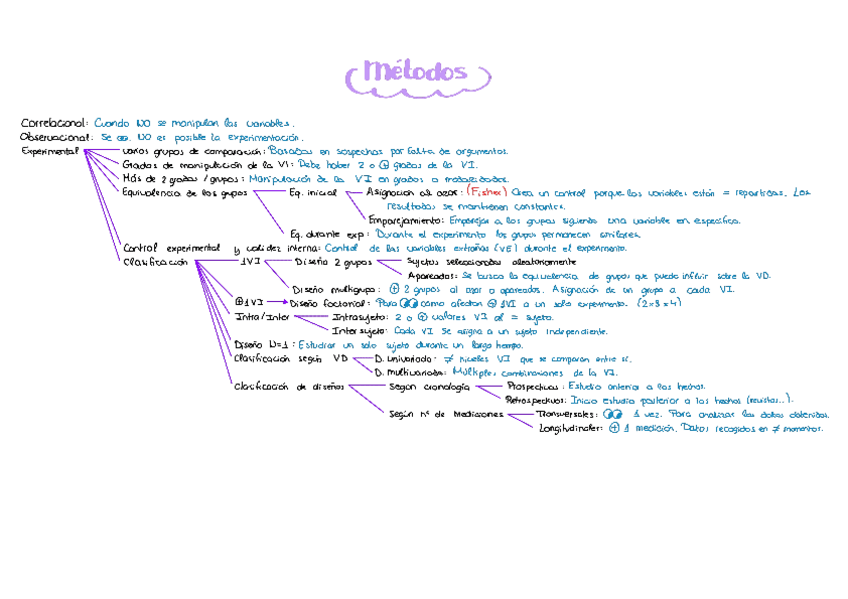 Métodos
Correlacional: Cuando NO se manipulan las variables.
Observacional: Se usa. NO es posible la experimentación.
Experimental
varios grupos de comparación: Basadas en sospechas por falta de argumentos.
Grados de manipulación de la VI: Debe haber 2 o ⊕ grados de la VI.
Más de 2 grados / grupos: Manipulación de la VI en grados o modalidades.
Equivalencia de los grupos
Eq. inicial
Asignación al azar: (Fisher) Crea un control porque las variables están = repartidas. Los
resultados se mantienen constantes.
Emparejamiento: Emparejar a los grupos siguiendo una variable en específico.
Eq. durante exp: Durante el experimento los grupos permanecen similares.
Control experimental y validez interna: Control de las variables extrañas (VE) durante el experimento.
Clasificación
1VI
Diseño 2 grupos
Sujetos seleccionados aleatoriamente
Apareados: Se busca la equivalencia de grupos que puede influir sobre la VD.
Diseño multigrupo: ⊕ 2 grupos al azar o apareados. Asignación de un grupo a cada VI.
⊕1VI
Diseño factorial: Para como afectan ⊕ 1VI a un solo experimento. (2×3×4)
Intra/Inter
Intrasujeto: 2 o ⊕ valores VI al = sujeto.
Intersujeto: Cada VI se asigna a un sujeto independiente.
Diseño N=1: Estudiar un solo sujeto durante un largo tiempo.
Clasificación según VD
D. univariado: ≠ niveles VI que se comparan entre sí.
D. multivariados: Múltiples combinaciones de la VI.
Clasificación de diseños
Según cronología
Prospectivos: Estudio anterior a los hechos.
Retrospectivos: Inicio estudio posterior a los hechos (revistas..).
Según nº de mediciones
Transversales: 1 vez. Para analizar los datos obtenidos.
Longitudinales: ⊕ 1 medición. Datos recogidos en ≠ momentos.